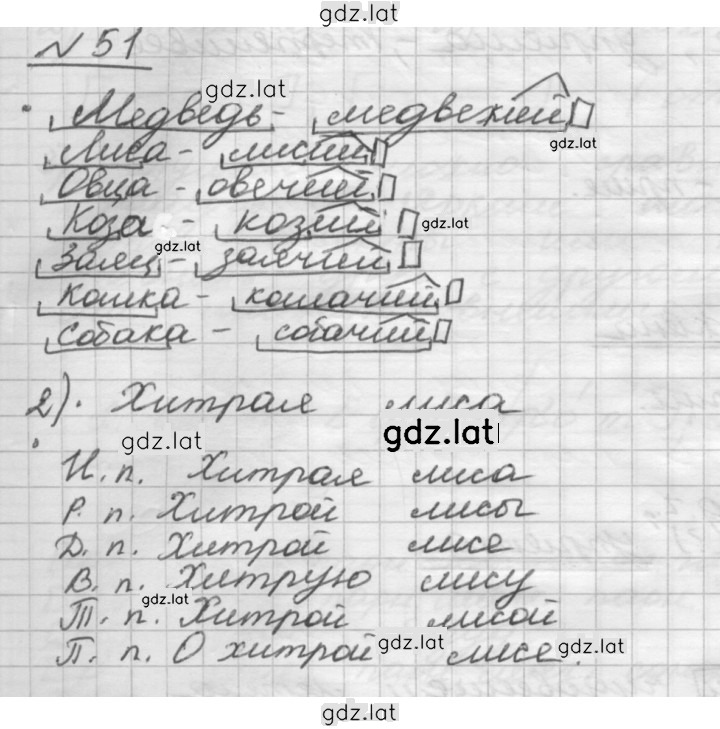 gdz.lat
№ 51
gdz.lat
Медведь - медвежий
gdz.lat
Лиса - лисий
Овца - овечий
Коза - козий
gdz.lat
gdz.lat
Заяц - заячий
Кошка - кошачий
Собака - собачий
2). Хитрая лиса
gdz.lat
gdz.lat
И. п. Хитрая лиса
Р. п. Хитрой лисы
Д. п. Хитрой лисе
В. п. Хитрую лису
gdz.lat
Т. п. Хитрой лисой
П. п. О хитрой лисе.
gdz.lat
gdz.lat
gdz.lat